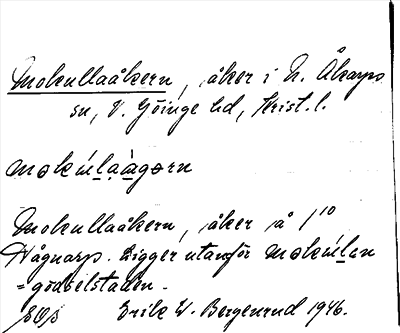 Mokullaåkern, åker i N. Åkarps
sn, V. Göinge hd, Krist. l.
mokúlaàgərn
Mokullaåkern, åker på 1¹⁰
Vågnarp. Ligger utanför mokúlan
= gödselstaden.
Erik W. Bergenrud 1946.